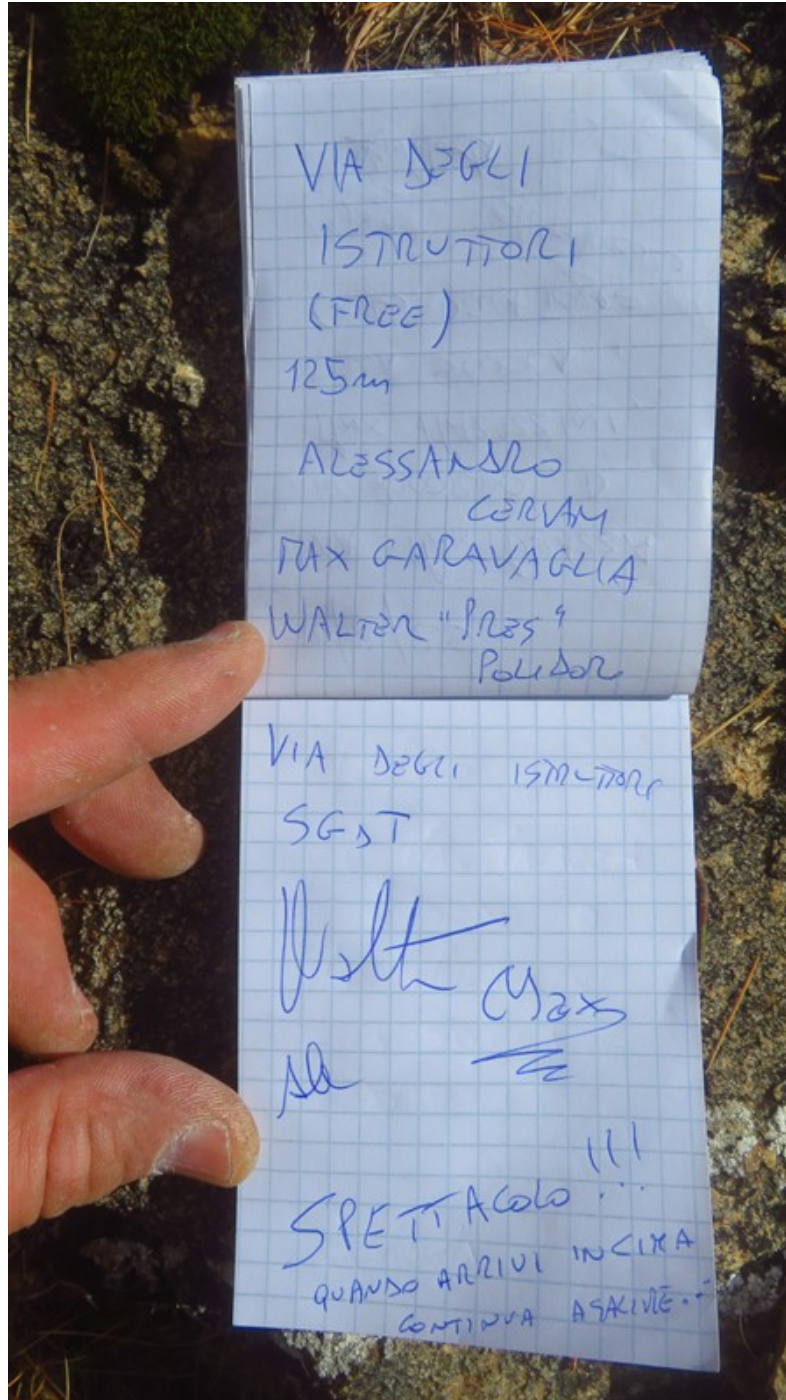 VIA DEGLI
ISTRUTTORI
(FREE)
125m
ALESSANDRO
CERVAM
MAX GARAVAGLIA
WALTER "PRES"
POLIDORI
VIA DEGLI ISTRUTTORI
SGDT
Walter
Max
Ale
SPETTACOLO !!!
QUANDO ARRIVI IN CIMA
CONTINUA A SALIRE...